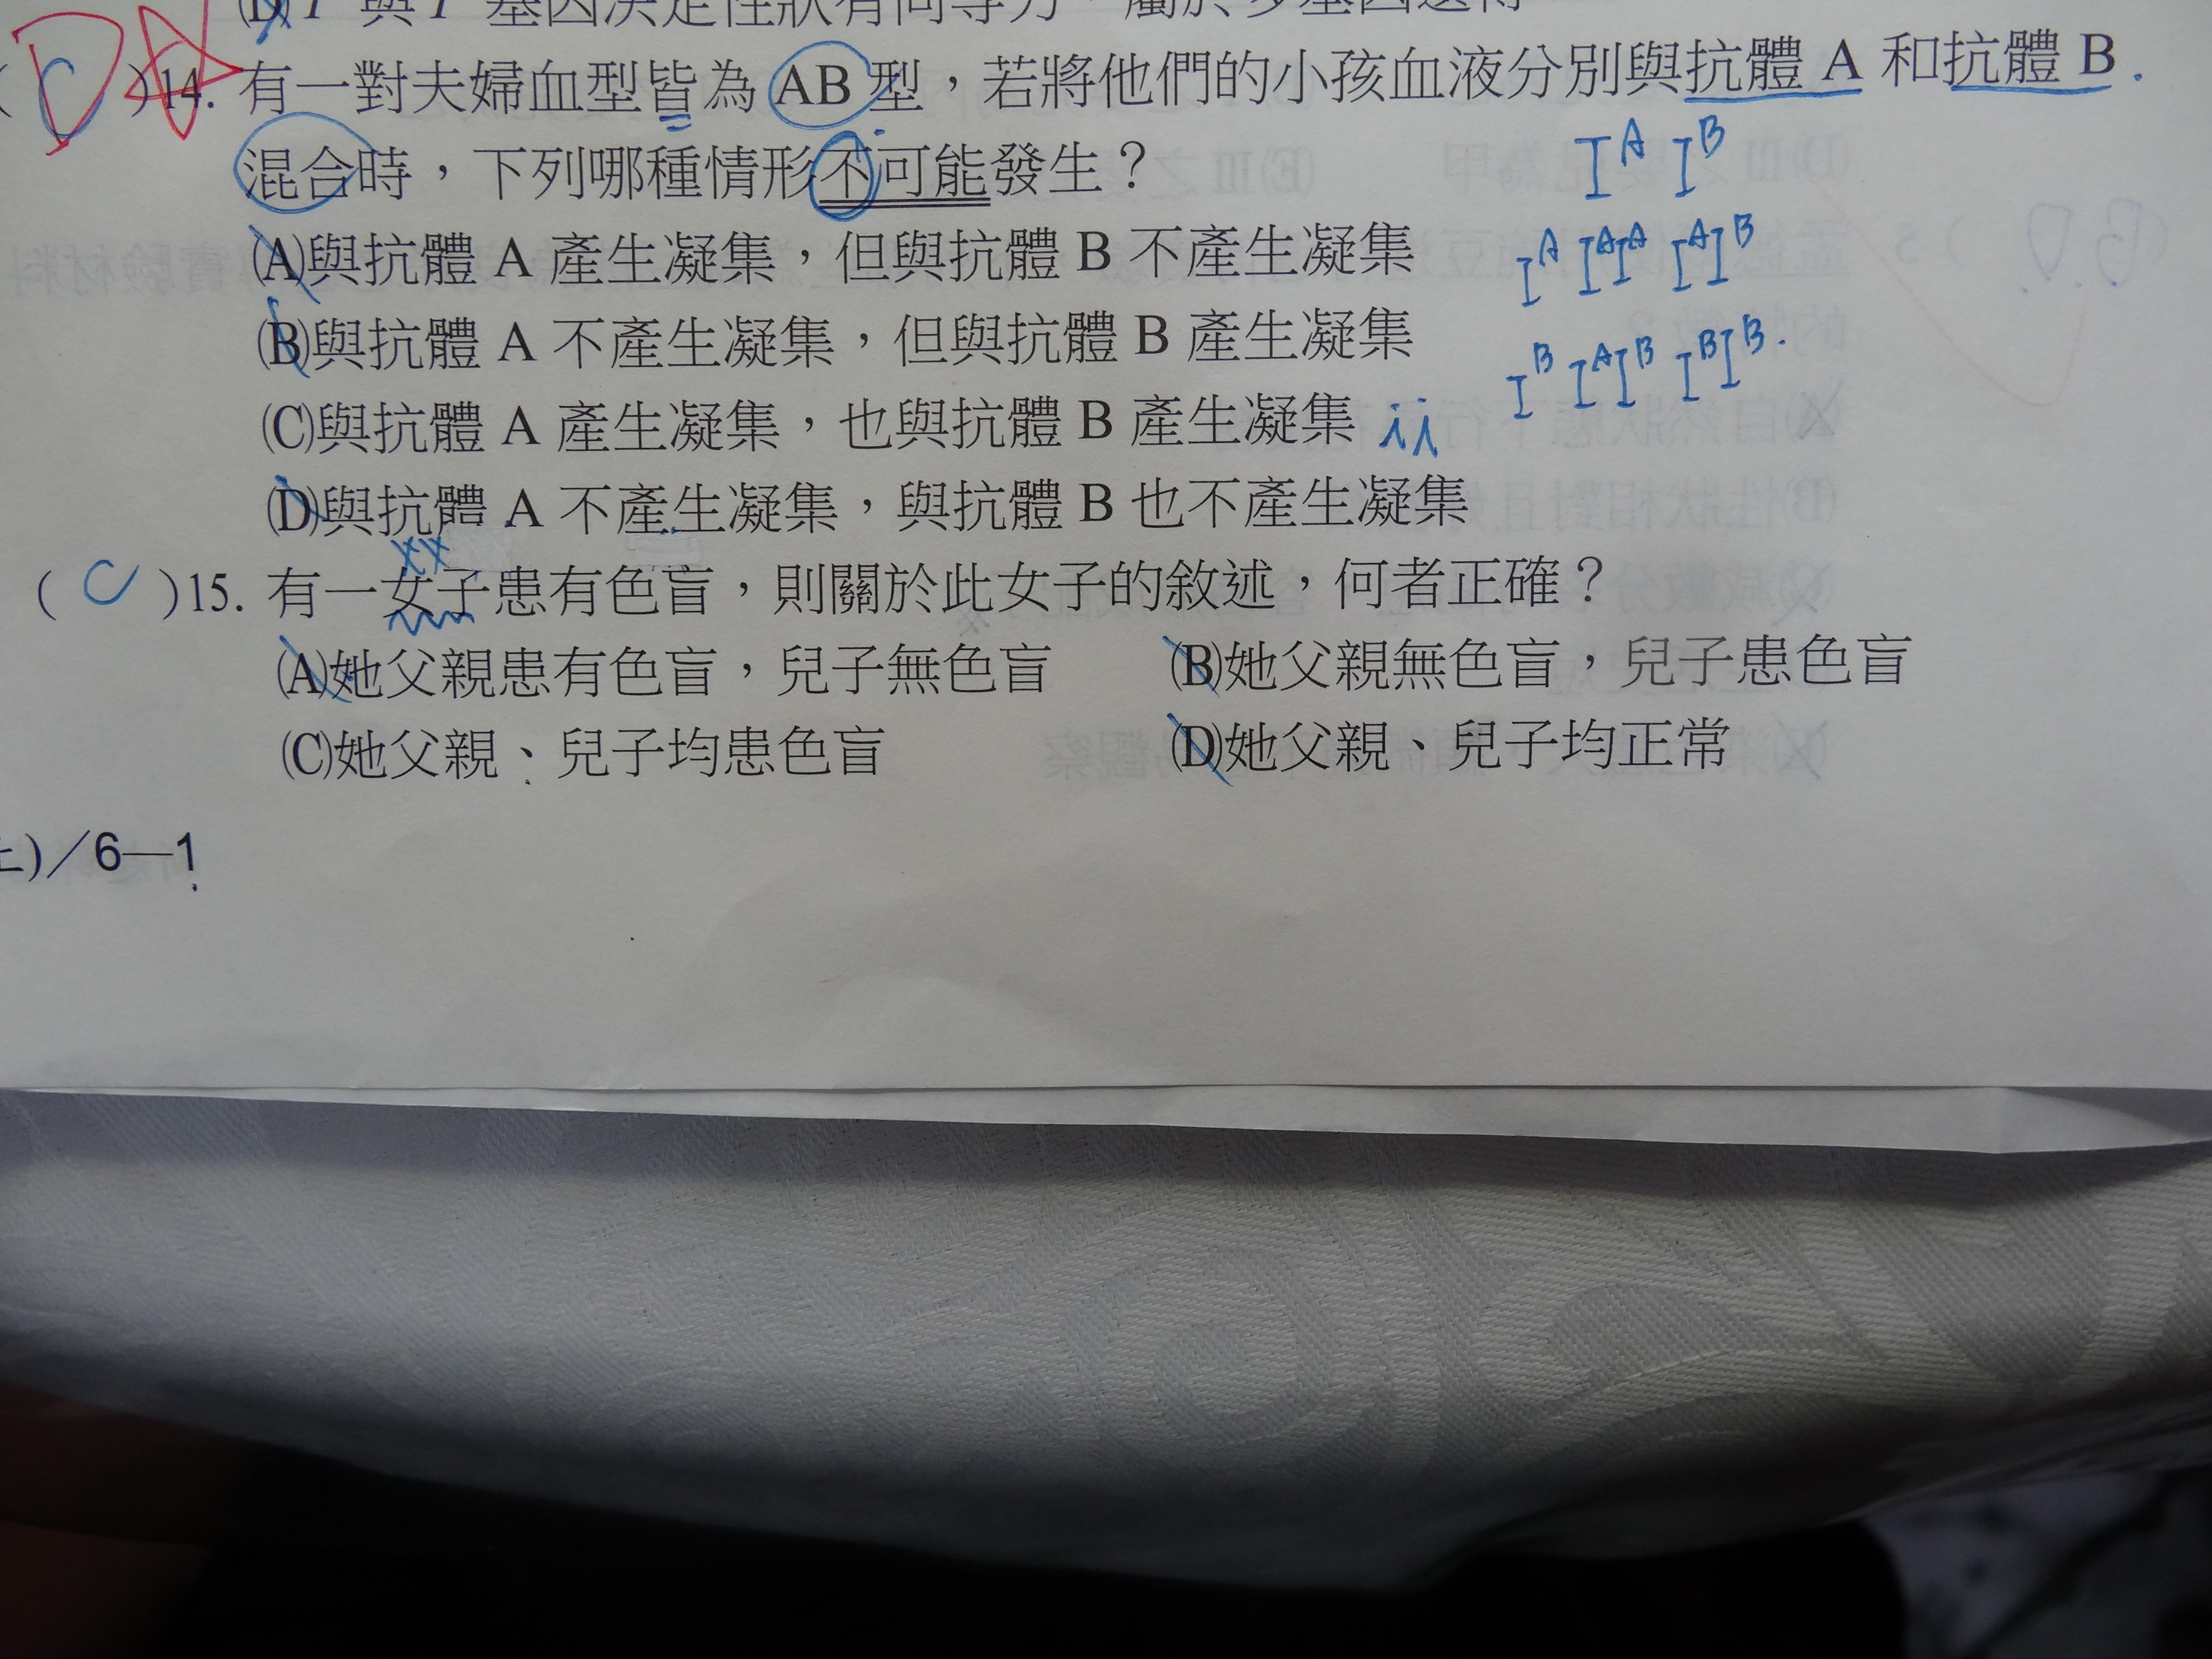 基因決定性狀有同等力，屬於多基因遺傳
( C )14. 有一對夫婦血型皆為 AB 型，若將他們的小孩血液分別與抗體 A 和抗體 B
D
混合時，下列哪種情形不可能發生？
I^A I^B
(A)與抗體 A 產生凝集，但與抗體 B 不產生凝集
I^A I^AI^A I^AI^B
(B)與抗體 A 不產生凝集，但與抗體 B 產生凝集
I^B I^AI^B I^BI^B
(C)與抗體 A 產生凝集，也與抗體 B 產生凝集 ii
(D)與抗體 A 不產生凝集，與抗體 B 也不產生凝集
XX
( C )15. 有一女子患有色盲，則關於此女子的敘述，何者正確？
(A)她父親患有色盲，兒子無色盲 (B)她父親無色盲，兒子患色盲
(C)她父親、兒子均患色盲 (D)她父親、兒子均正常
上)／6—1